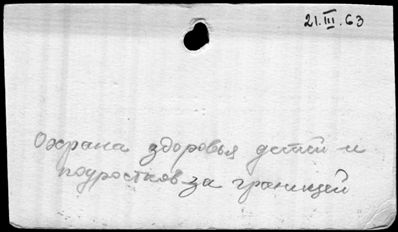 21.III.63
Охрана здоровья детей и
подростков за границей